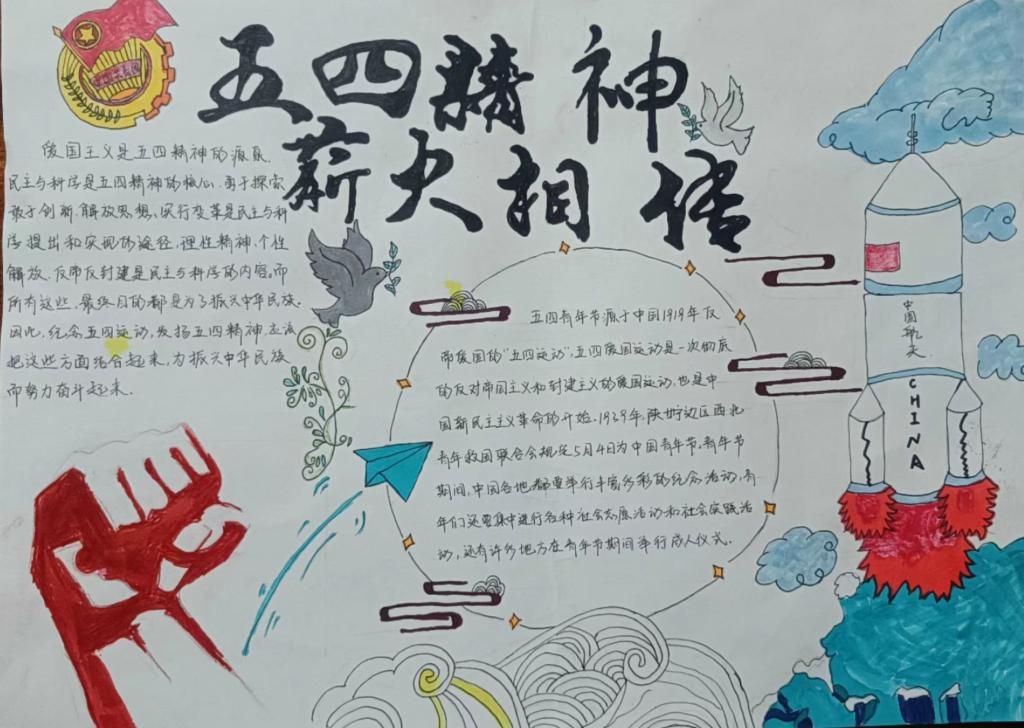 五四精神
薪火相传
爱国主义是五四精神的源泉，
民主与科学是五四精神的核心，勇于探索、
敢于创新、解放思想、实行变革是民主与科
学提出和实现的途径，理性精神、个性
解放、反帝反封建是民主与科学的内容。而
所有这些，最终目的都是为了振兴中华民族。
因此，纪念五四运动，发扬五四精神，应该
把这些方面结合起来，为振兴中华民族
而努力奋斗起来．
五四青年节源于中国1919年反
帝爱国的“五四运动”，五四爱国运动是一次彻底
的反对帝国主义和封建主义的爱国运动，也是中
国新民主主义革命的开始．1939年，陕甘宁边区西北
青年救国联合会规定5月4日为中国青年节。青年节
期间，中国各地都要举行丰富多彩的纪念活动，青
年们还要集中进行各种社会志愿活动和社会实践活
动，还有许多地方在青年节期间举行成人仪式．
中国航天
CHINA